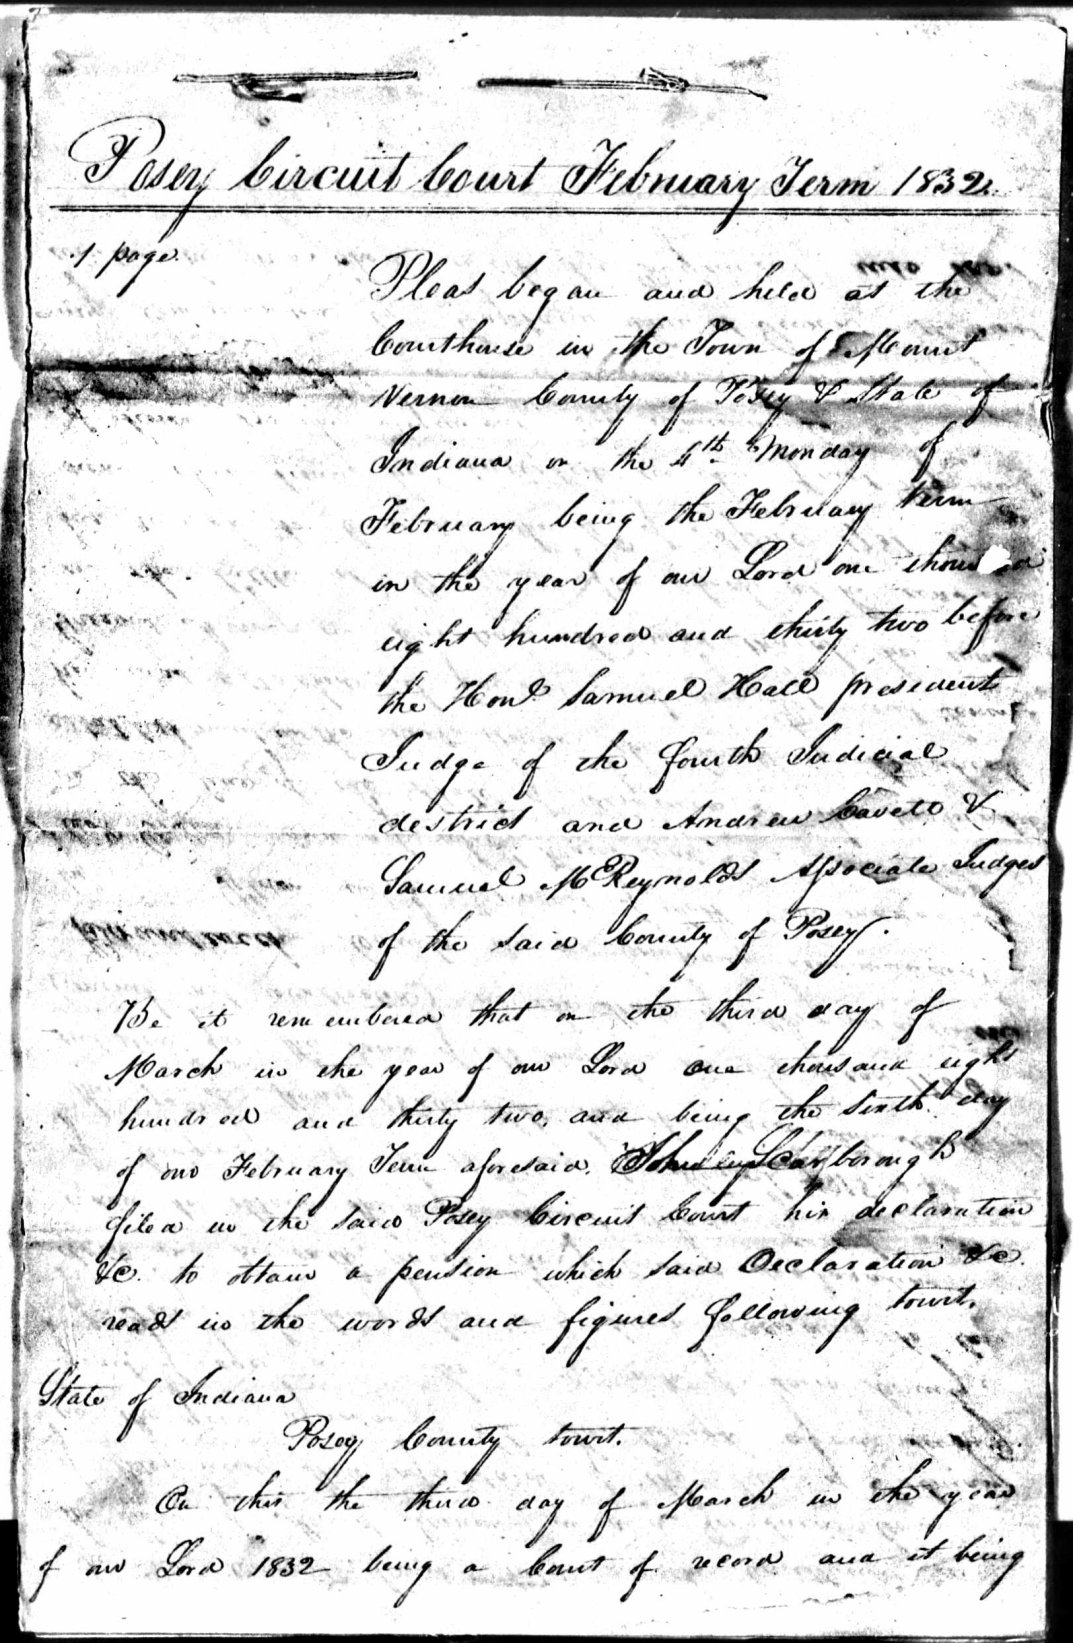 Posey Circuit Court February Term 1832.
1 page.
Pleas began and held at the
Courthouse in the Town of Mount
Vernon County of Posey & State of
Indiana on the 4th Monday of
February being the February term
in the year of our Lord one
eight hundred and thirty two before
the Honl. Samuel Hall president
Judge of the fourth Judicial
destrict and Andrew Cavett &
Samuel McReynolds Associate Judges
of the said County of Posey.
Be it remembered that on the third day of
March in the year of our Lord one thousand eight
hundred and thirty two, and being the sixth day
of our February Term aforesaid. Scarborough
filed in the said Posey Circuit Court his declaration
&c. to obtain a pension which said Declaration &c.
reads in the words and figures following towit.
State of Indiana
Posey County towit.
On this the third day of March in the year
of our Lord 1832 being a Court of record and it being